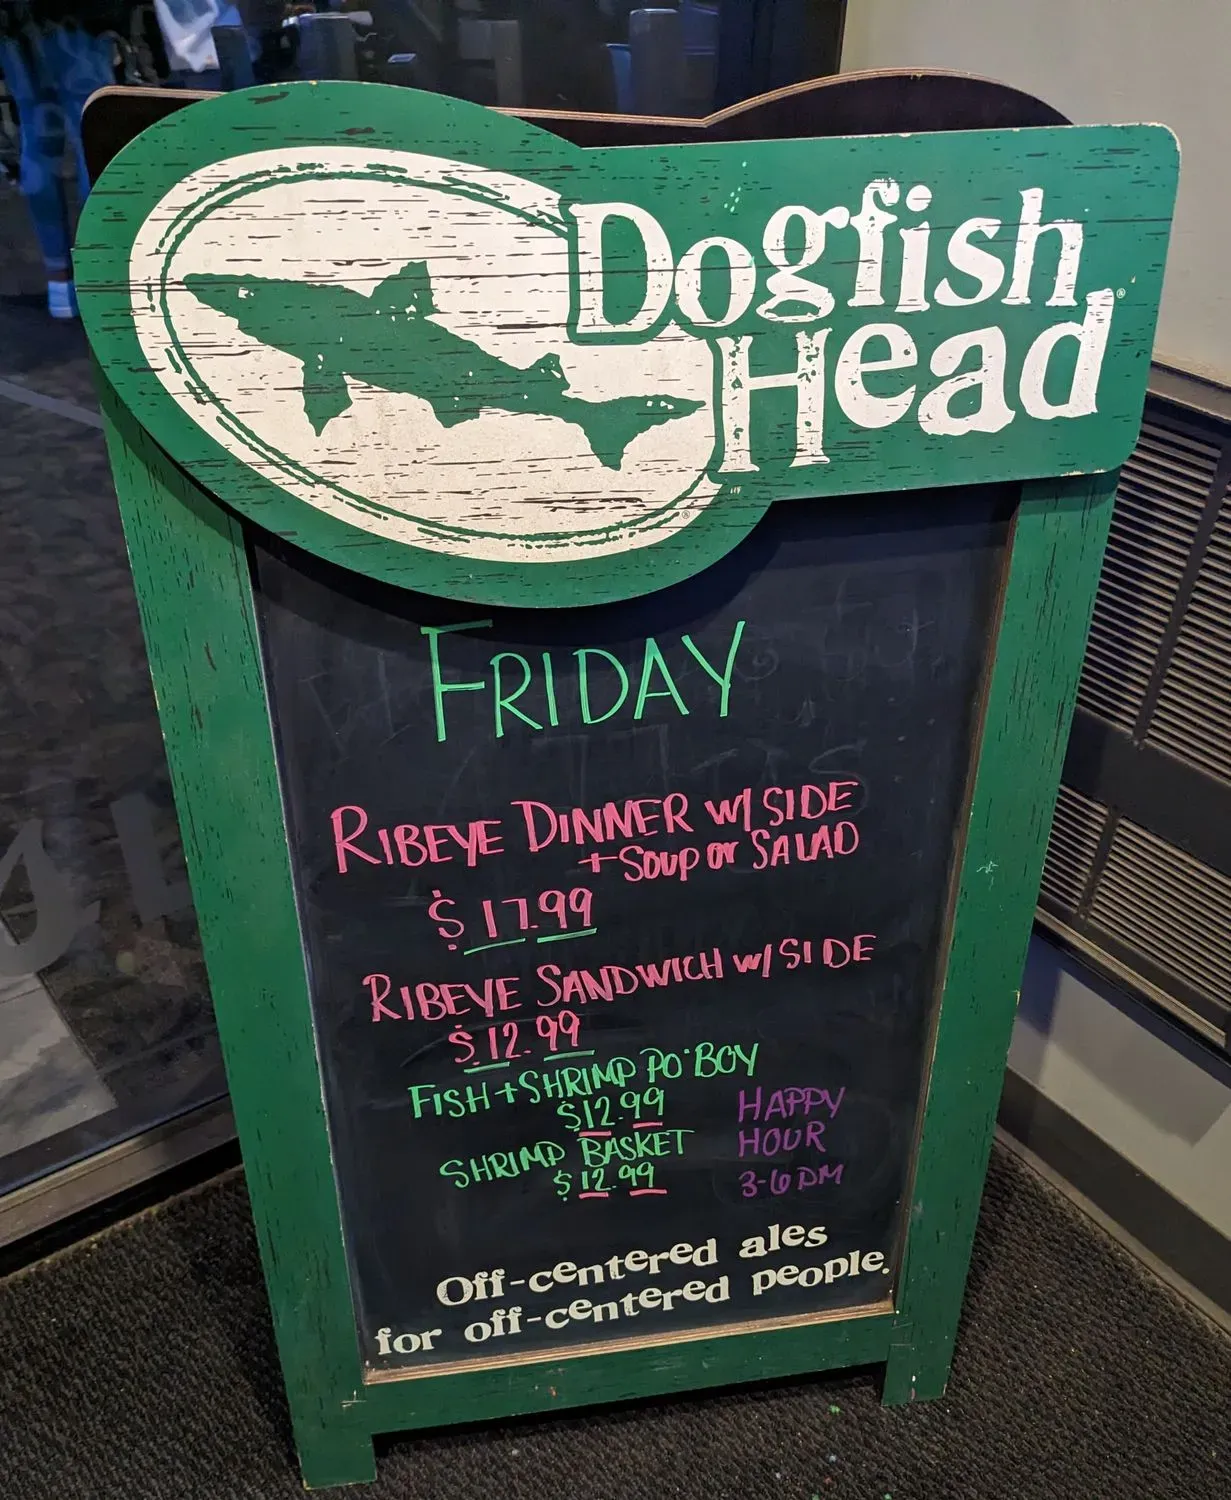 Dogfish
Head
FRIDAY
RIBEYE DINNER W/ SIDE
+ SOUP or SALAD
$17.99
RIBEYE SANDWICH W/ SIDE
$12.99
FISH + SHRIMP PO' BOY
$12.99
SHRIMP BASKET
$12.99
HAPPY
HOUR
3-6 PM
Off-centered ales
for off-centered people.